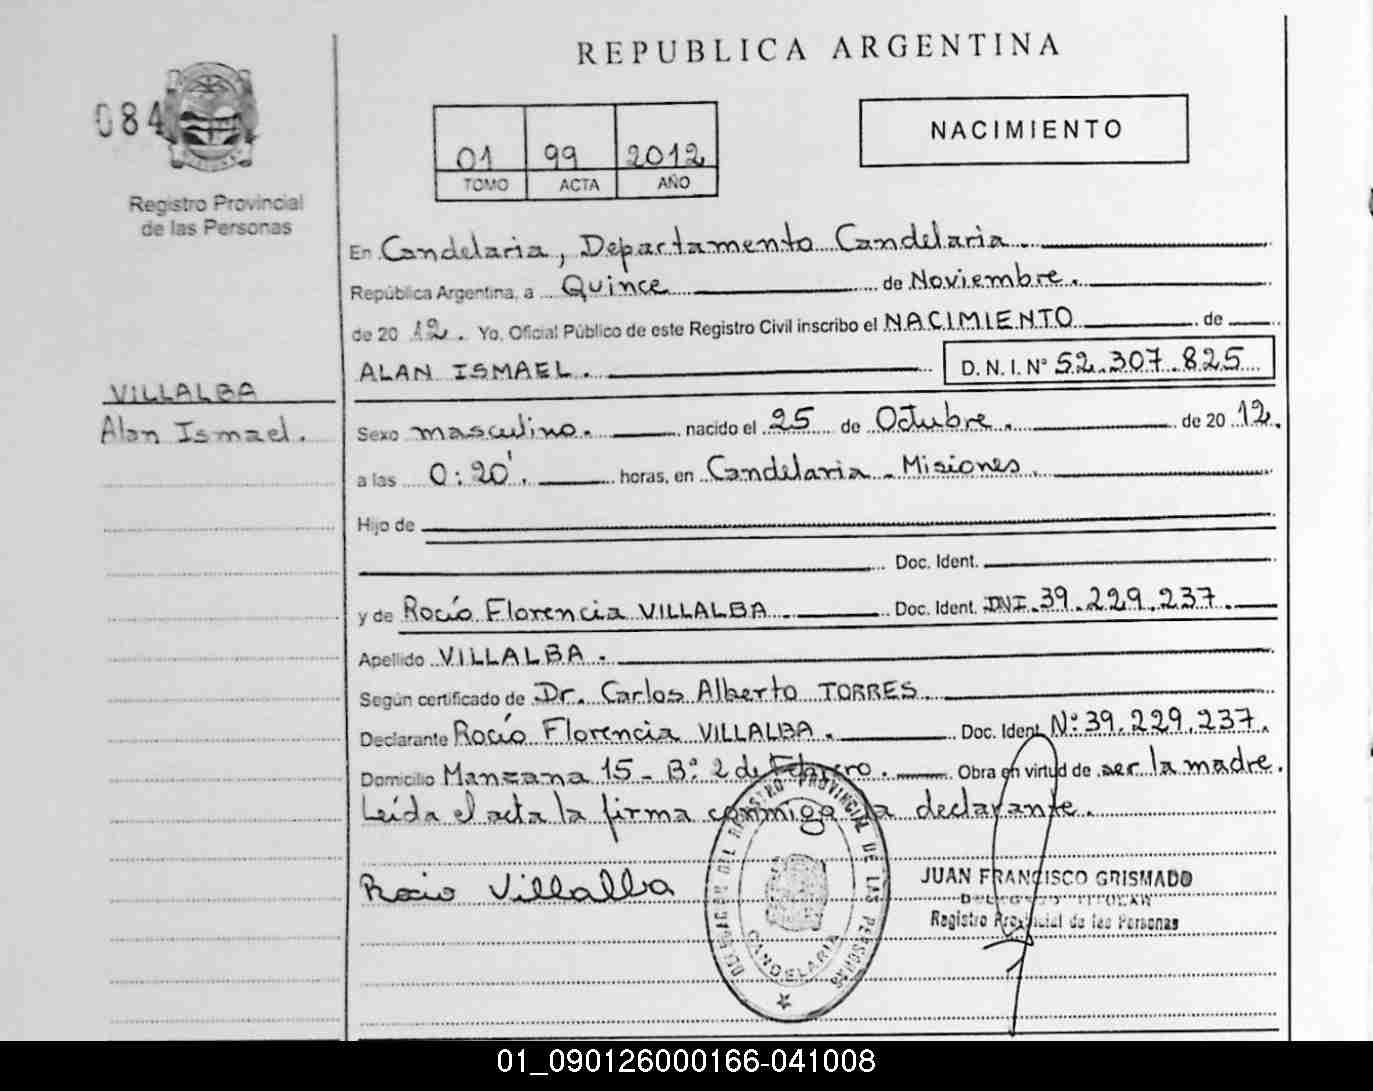 REPUBLICA ARGENTINA
084
Registro Provincial
de las Personas
01 99 2012
TOMO ACTA AÑO
NACIMIENTO
En Candelaria, Departamento Candelaria.
República Argentina, a Quince de Noviembre.
de 20 12. Yo, Oficial Público de este Registro Civil inscribo el NACIMIENTO de
ALAN ISMAEL. D. N. I. Nº 52.307.825
VILLALBA
Alan Ismael.
Sexo masculino. nacido el 25 de Octubre. de 20 12.
a las 0:20'. horas, en Candelaria - Misiones.
Hijo de
Doc. Ident.
y de Rocío Florencia VILLALBA Doc. Ident. DNI. 39.229.237.
Apellido VILLALBA.
Según certificado de Dr. Carlos Alberto TORRES
Declarante Rocío Florencia VILLALBA. Doc. Ident. Nº 39.229.237.
Domicilio Manzana 15 - Bº 2 de Febrero. Obra en virtud de ser la madre.
Leída el acta la firma conmigo la declarante.
Rocio Villalba
DELEGACION DEL REGISTRO PROVINCIAL DE LAS PERSONAS
CANDELARIA
JUAN FRANCISCO GRISMADO
DELEGADO TITULAR
Registro Provincial de las Personas
01_090126000166-041008